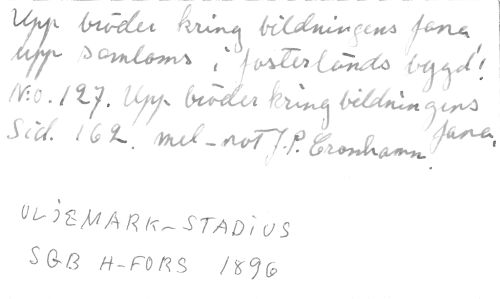 Upp bröder kring bildningens fana!
upp samloms i fosterlånds bygd!
N:o. 127. Upp bröder kring bildningens
fana.
Sid. 162. mel-not J.P. Cronhamn.
ULJEMARK-STADIUS
SGB H-FORS 1896